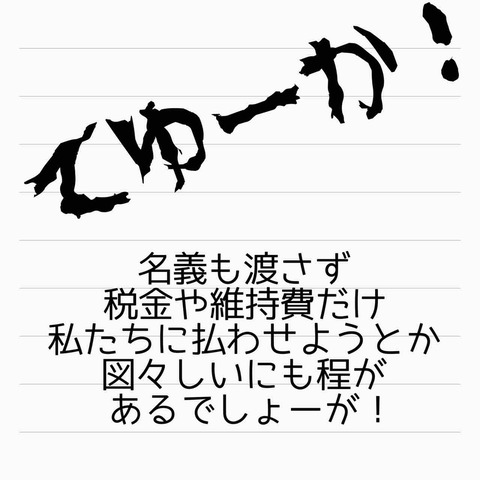 てゆーか！
名義も渡さず
税金や維持費だけ
私たちに払わせようとか
図々しいにも程が
あるでしょーが！